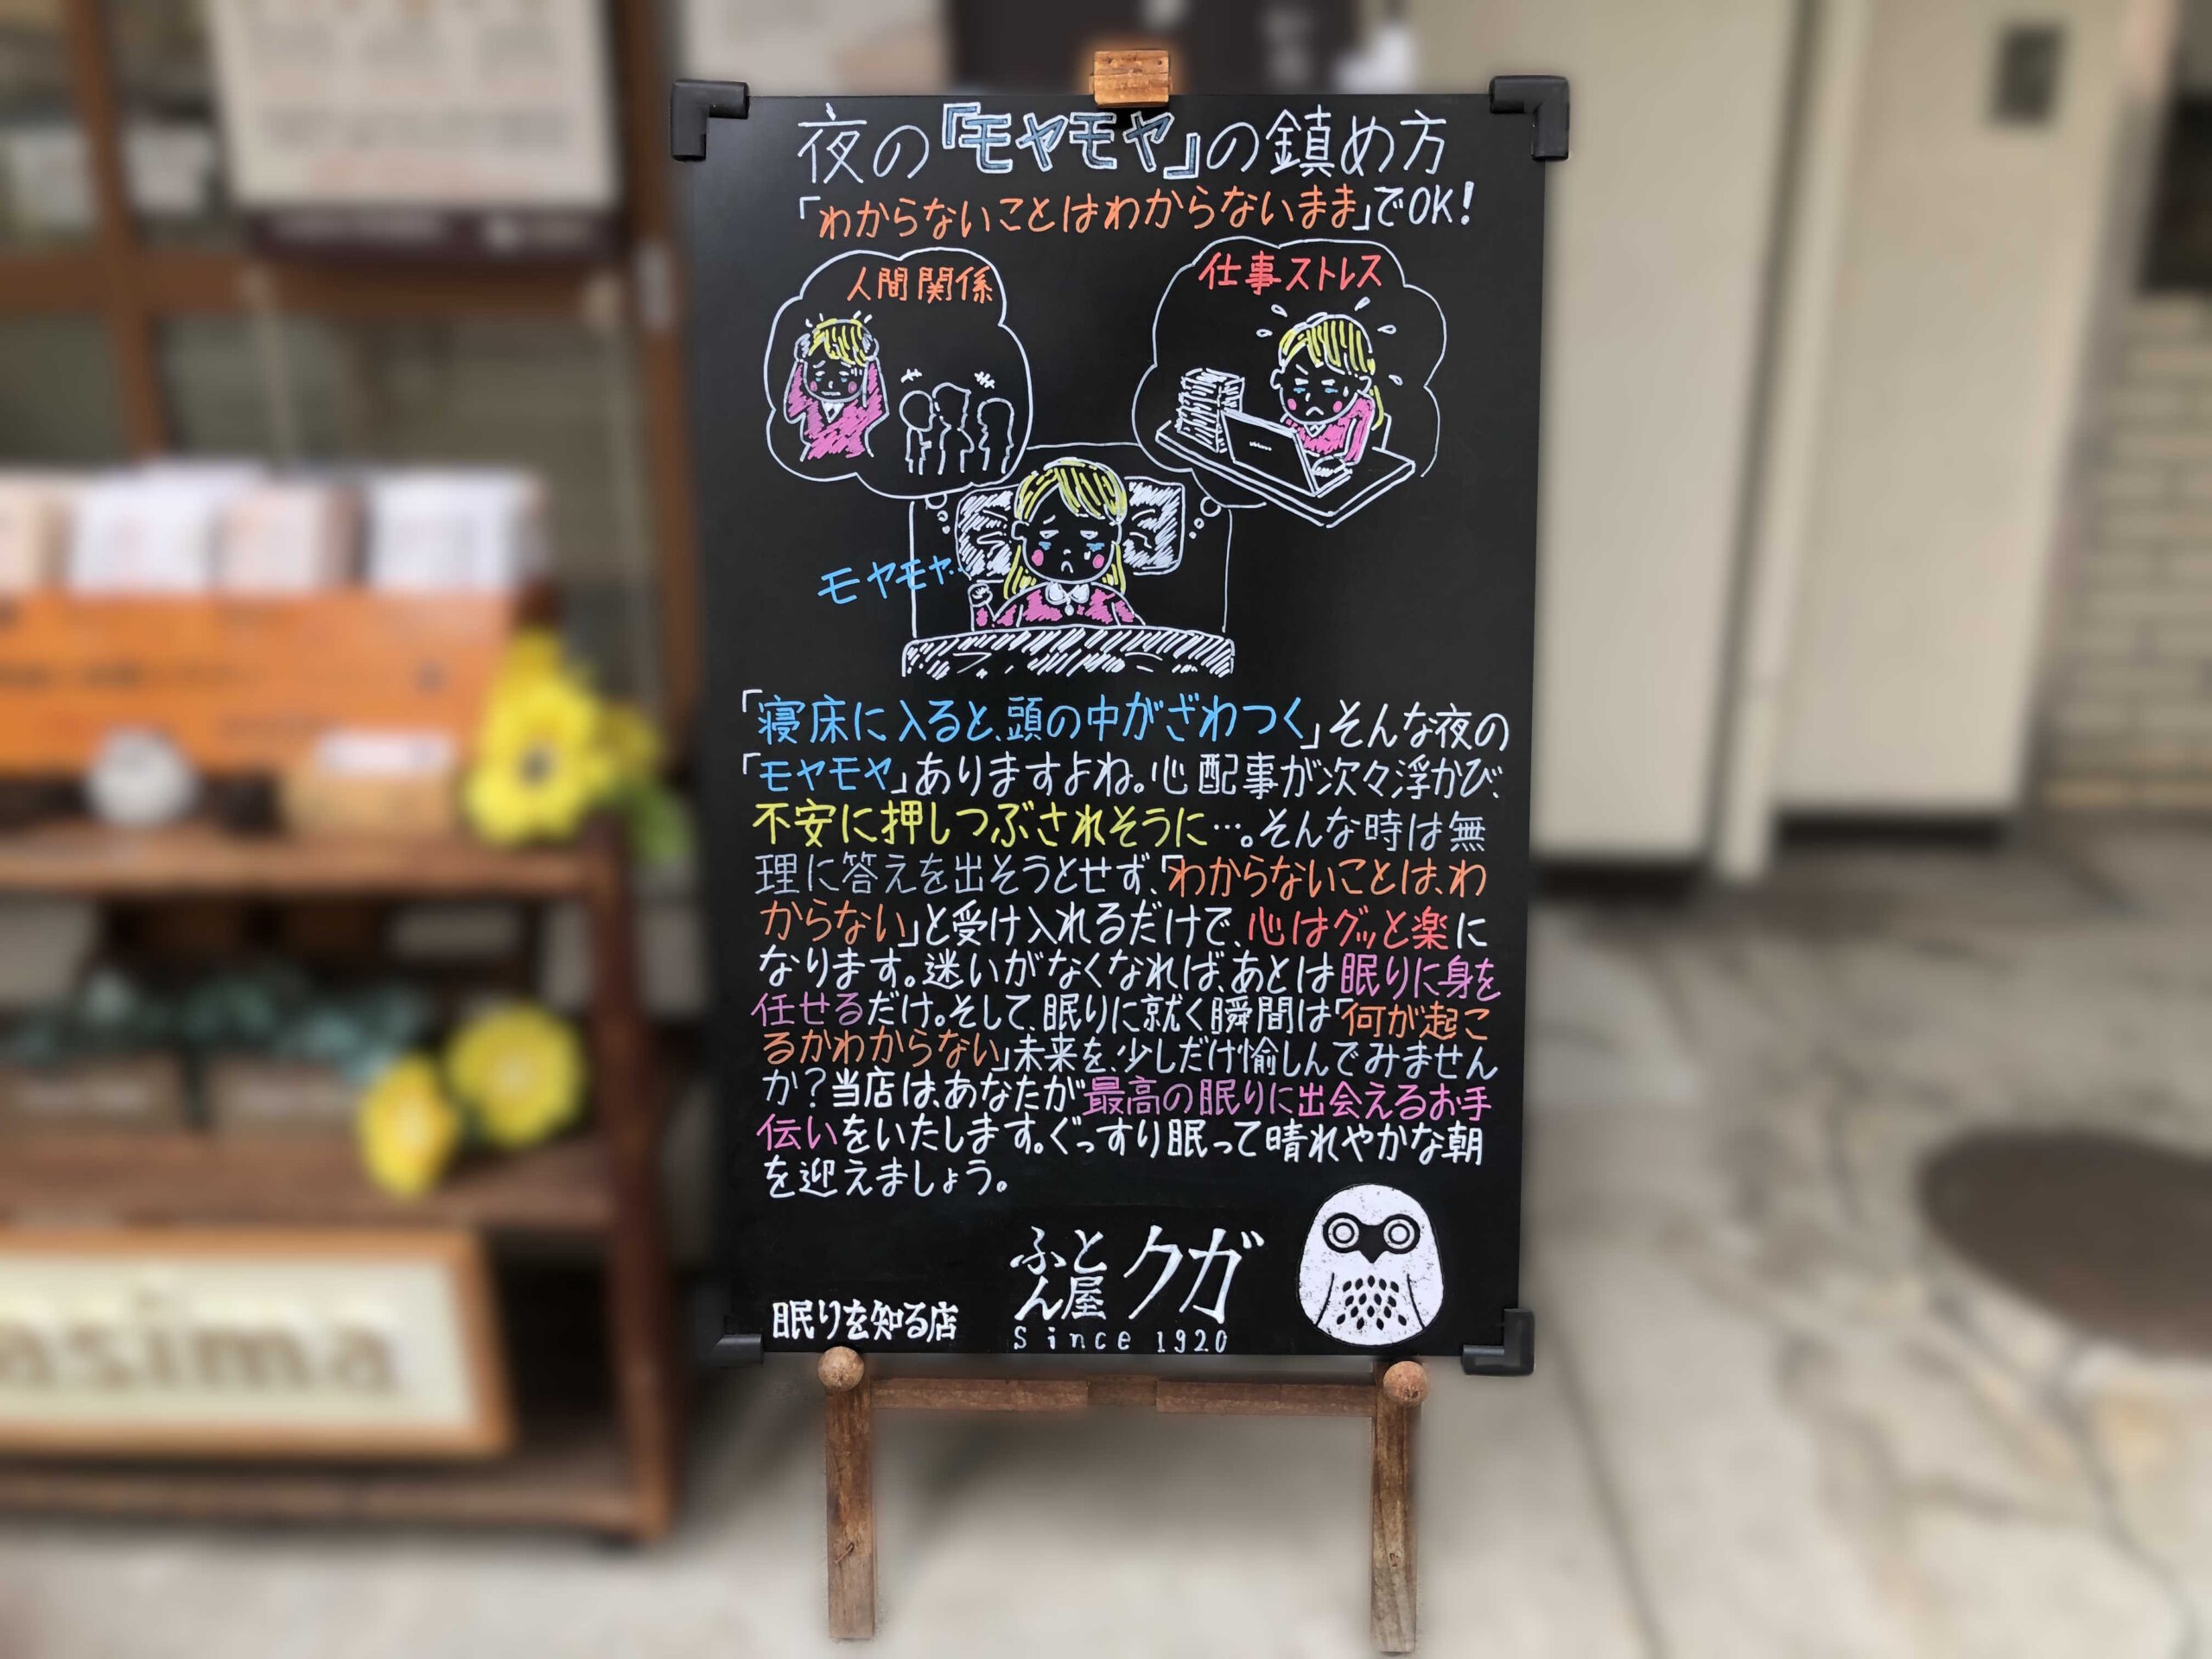 夜の『モヤモヤ』の鎮め方
「わからないことはわからないまま」でOK!
人間関係
仕事ストレス
モヤモヤ‥
「寝床に入ると、頭の中がざわつく」そんな夜の
「モヤモヤ」ありますよね。心配事が次々浮かび、
不安に押しつぶされそうに…。そんな時は無
理に答えを出そうとせず、「わからないことは、わ
からない」と受け入れるだけで、心はグッと楽に
なります。迷いがなくなれば、あとは眠りに身を
任せるだけ。そして、眠りに就く瞬間は「何が起こ
るかわからない」未来を、少しだけ愉しんでみません
か?当店は、あなたが最高の眠りに出会えるお手
伝いをいたします。ぐっすり眠って晴れやかな朝
を迎えましょう。
眠りを知る店
ふとん屋クガ
Since 1920
asima